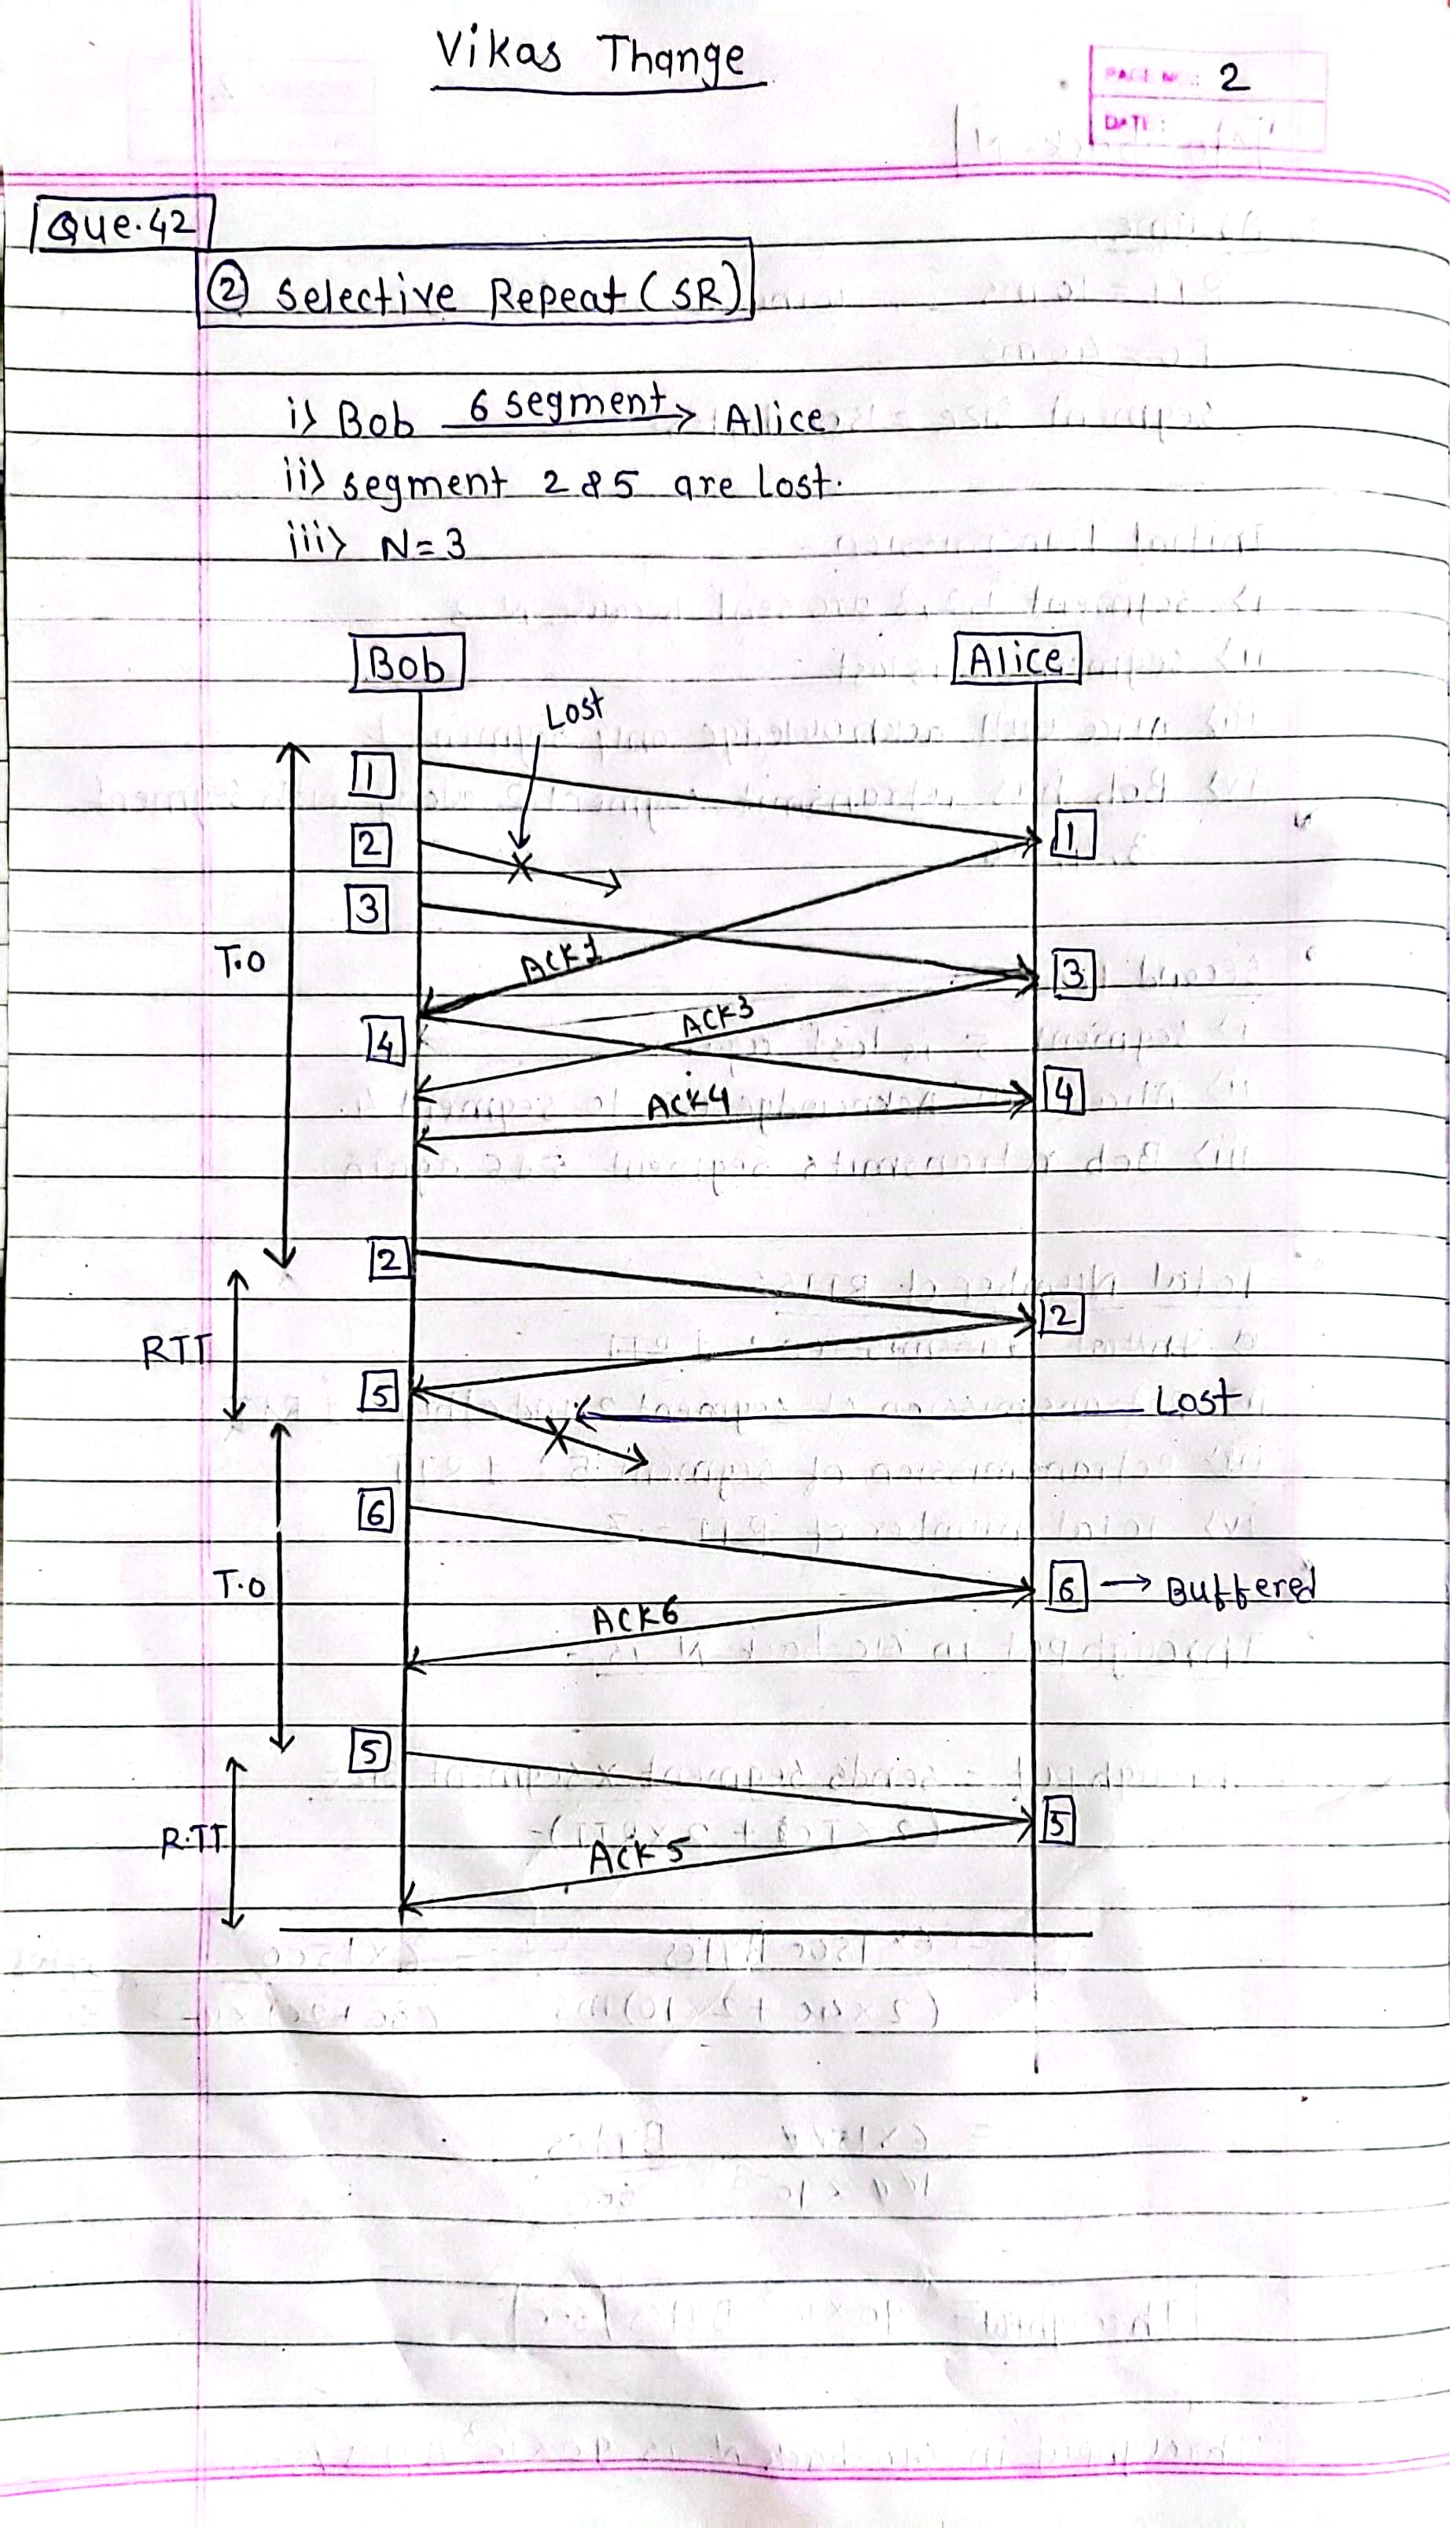 Vikas Thange
PAGE NO.: 2
DATE:
Que.42
② Selective Repeat (SR)
i) Bob 6 segment Alice
ii) segment 2 & 5 are Lost.
iii) N=3
Bob Alice
Lost
1
2 1
3
T.O ACK1 3
ACK3
4
ACK4 4
2
2
RTT
5 Lost
6
T.O 6 → Buffered
ACK6
5
5
RTT ACK5